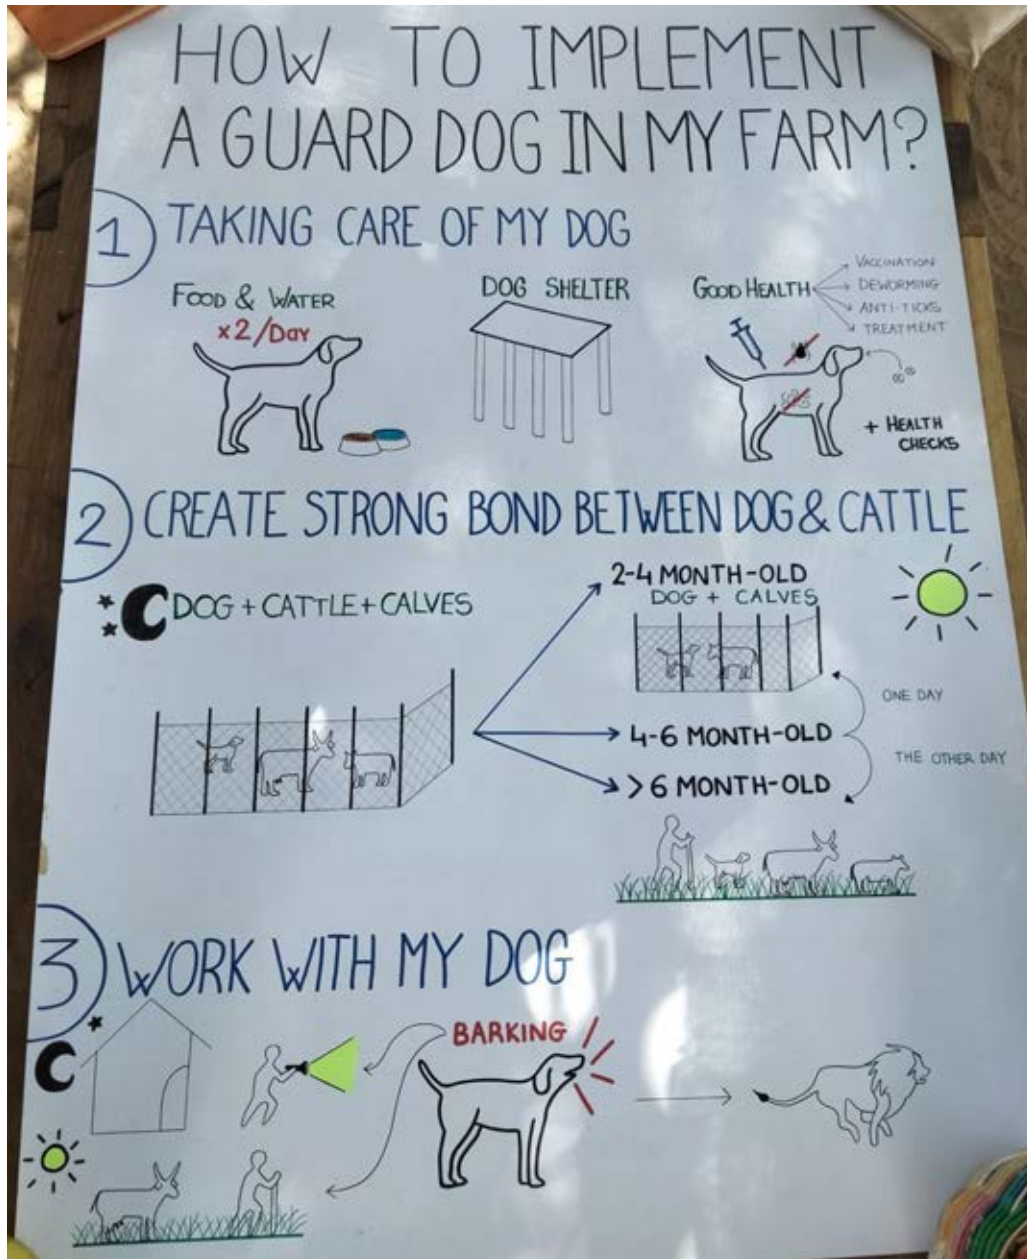 HOW TO IMPLEMENT
A GUARD DOG IN MY FARM?
1 TAKING CARE OF MY DOG
FOOD & WATER
x2/DAY
DOG SHELTER
GOOD HEALTH
VACCINATION
DEWORMING
ANTI-TICKS
TREATMENT
+ HEALTH
CHECKS
2 CREATE STRONG BOND BETWEEN DOG & CATTLE
DOG + CATTLE + CALVES
2-4 MONTH-OLD
DOG + CALVES
ONE DAY
4-6 MONTH-OLD
THE OTHER DAY
>6 MONTH-OLD
3 WORK WITH MY DOG
BARKING